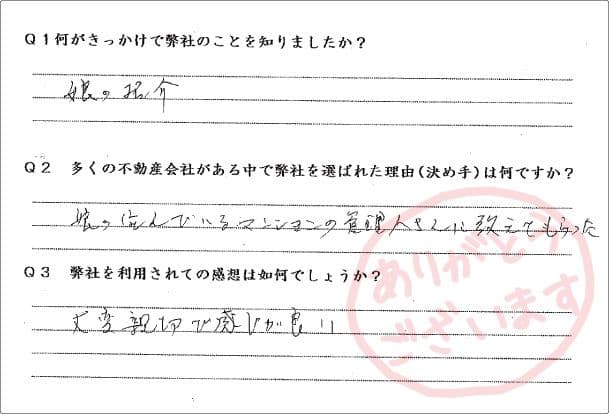 Q1何がきっかけで弊社のことを知りましたか?
娘の紹介
Q2 多くの不動産会社がある中で弊社を選ばれた理由(決め手)は何ですか?
娘の住んでいるマンションの管理人さんに教えてもらった
Q3 弊社を利用されての感想は如何でしょうか?
大変親切で感じが良い
ありがとう
ございます